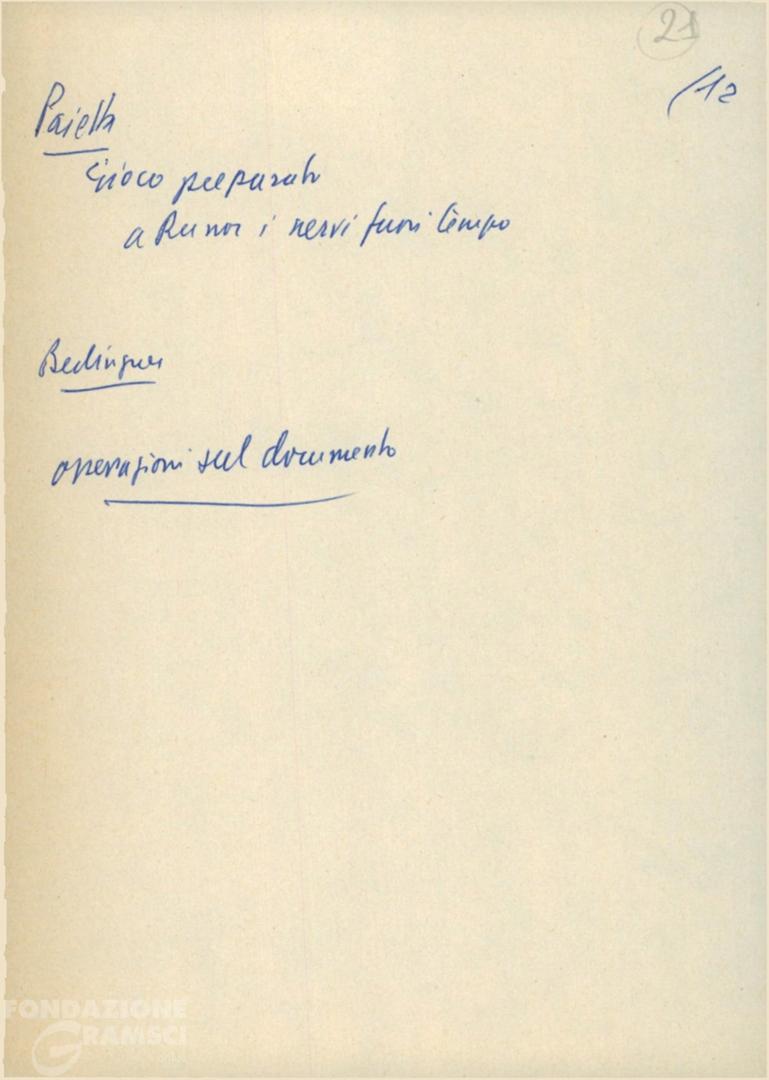 21
/12
Paietta
Gioco preparato
a Rumor i nervi fuori tempo
Berlinguer
operazioni sul documento
FONDAZIONE
GRAMSCI